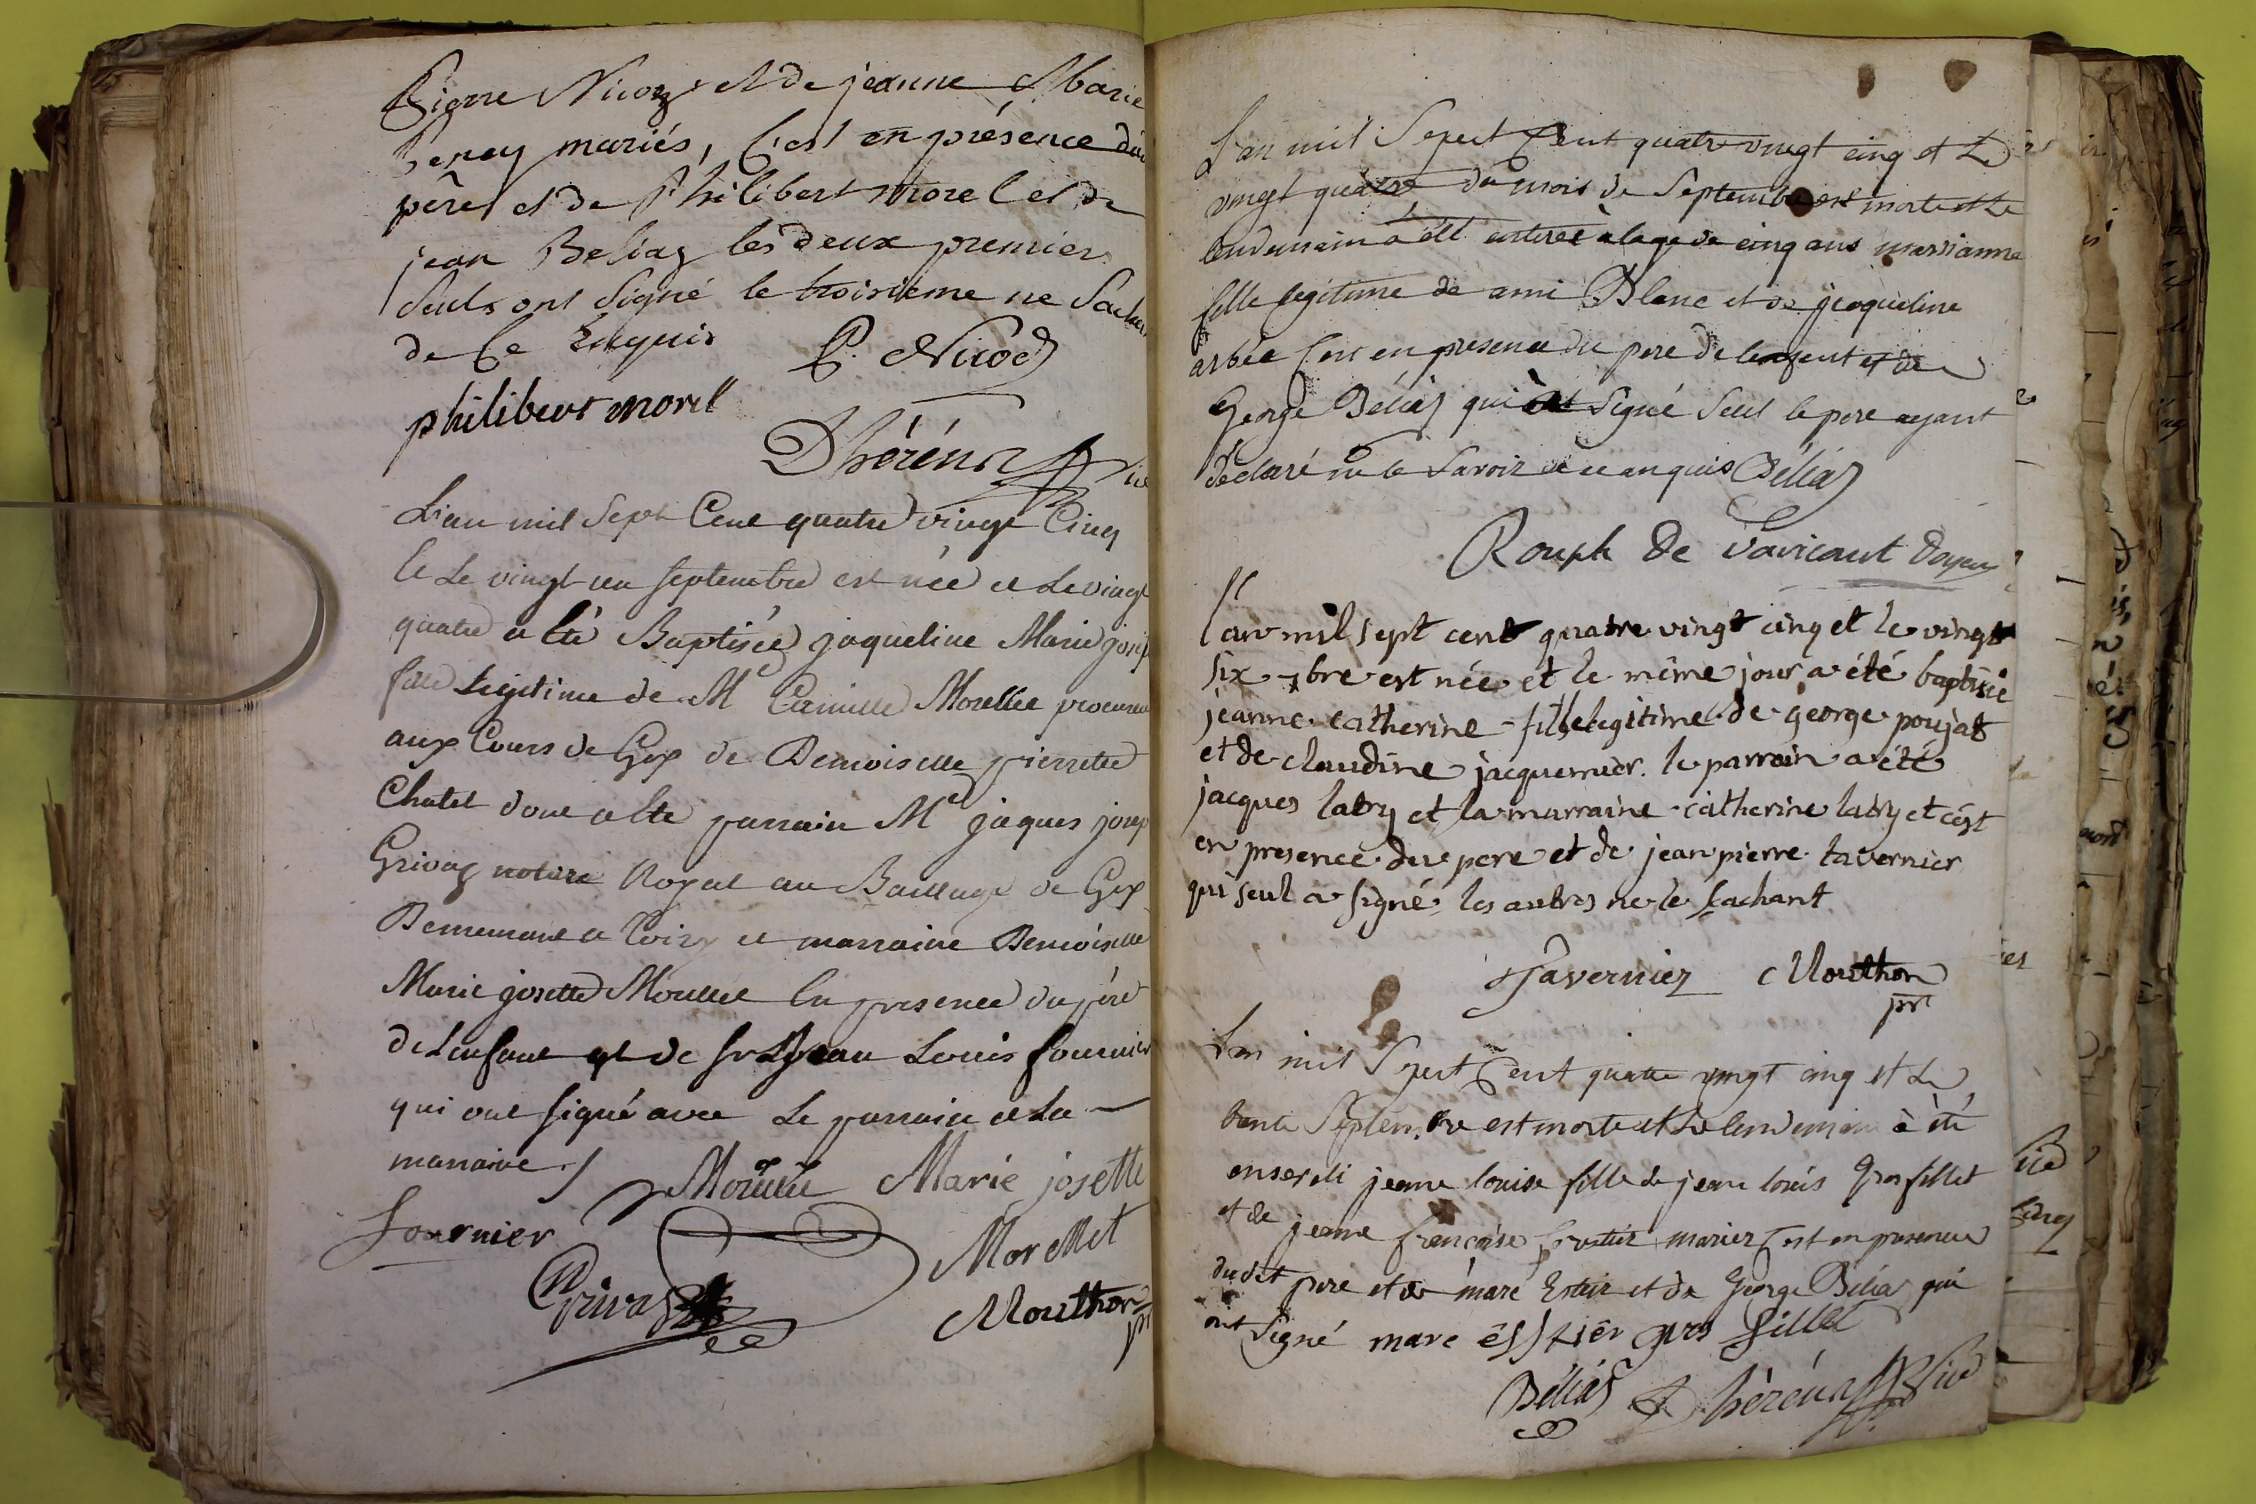 Pierre Nicoz et de jeanne Marie
Peney mariés, C'est en présence du
père et de Philibert Morel et de
jean Beliaz les deux premiers
seuls ont signé le troisieme ne sachant
de ce Enquis P. Nicod
philibert morel
Dhéréns vic
L'an mil sept Cent quatre vingt Cinq
le Le vingt un septembre est née et Le vingt
quatre a été Baptisée jaqueline Marie josep
fille Legitime de Me Camille Morellet procureur
aux Cours de Gex de Demoiselle pierrette
Chatel dont a été parrain Me jaques josep
Grivaz notaire Royal au Baillage de Gex
Demeurant a et marraine Demoiselle
Marie josette Morellet En presence du père
de Lenfant et de sr Jean Louis fournier
qui ont signé avec Le parrain et La
marraine ./. Morellet Marie josette
Fournier
Morellet
Grivaz
Mouthon pr
L'an mil Sepet Cent quatre vingt cinq et Le
vingt quatre du mois de Septembre est morte et Le
lendemain a été enteree à lage de cinq ans marianne
fille legitime de ami Blanc et de jeaqueline
arbée Cest en presence du pere de lenfent et de
George Béliaz qui ont signé seul le pere ayant
déclaré ne le savoir de ce anquis Béliaz
Rouph De Varicourt Doyen
l'an mil sept cent quatre vingt cinq et le vingt
six 7bre est née et le même jour a été baptisée
jeanne catherine fille legitime de george poujat
et de claudine jacquemier. le parrain a été
jacques labry et la marraine catherine labry et c'est
en presence du pere et de jean pierre tavernier
qui seul a signé les autres ne le sachant
Tavernier Mouthon
pr
Lan mil Sepet Cent quatre vingt cinq et Le
trente Septembre est morte et Le lendemain à été
enseveli jeanne louise fille de jean louis Grosfillet
et de jeanne françoise mariez Cest en presence
dudit pere et de marc Estier et de George Béliaz qui
ont Signé marc esstier gros fillet
Béliaz Dhéréns Vic